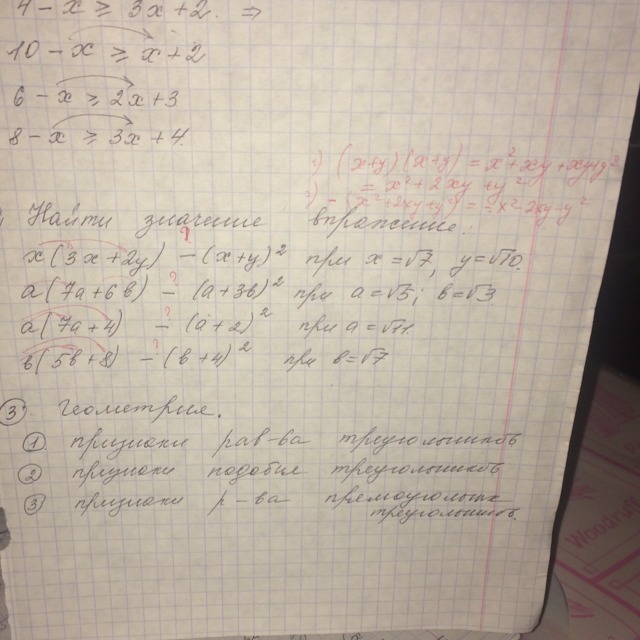 4 - x ≥ 3x + 2. ⇒
10 - x ≥ x + 2
6 - x ≥ 2x + 3
8 - x ≥ 3x + 4.
1) (x+y)(x+y) = x²+xy+xy+y²
= x²+2xy+y²
2) -(x²+2xy+y²) = -x²-2xy-y²
Найти значение впражение:
x(3x+2y) - (x+y)² при x=√7, y=√10.
?
a(7a+6в) - (a+3в)² при a=√5; в=√3
?
a(7a+4) - (a+2)² при a=√11.
?
в(5в+8) - (в+4)² при в=√7
?
③ Геометрия.
① признаки рав-ва треугольников
② признаки подобия треугольников
③ признаки р-ва прямоугольных
треугольников.
Woodcraft